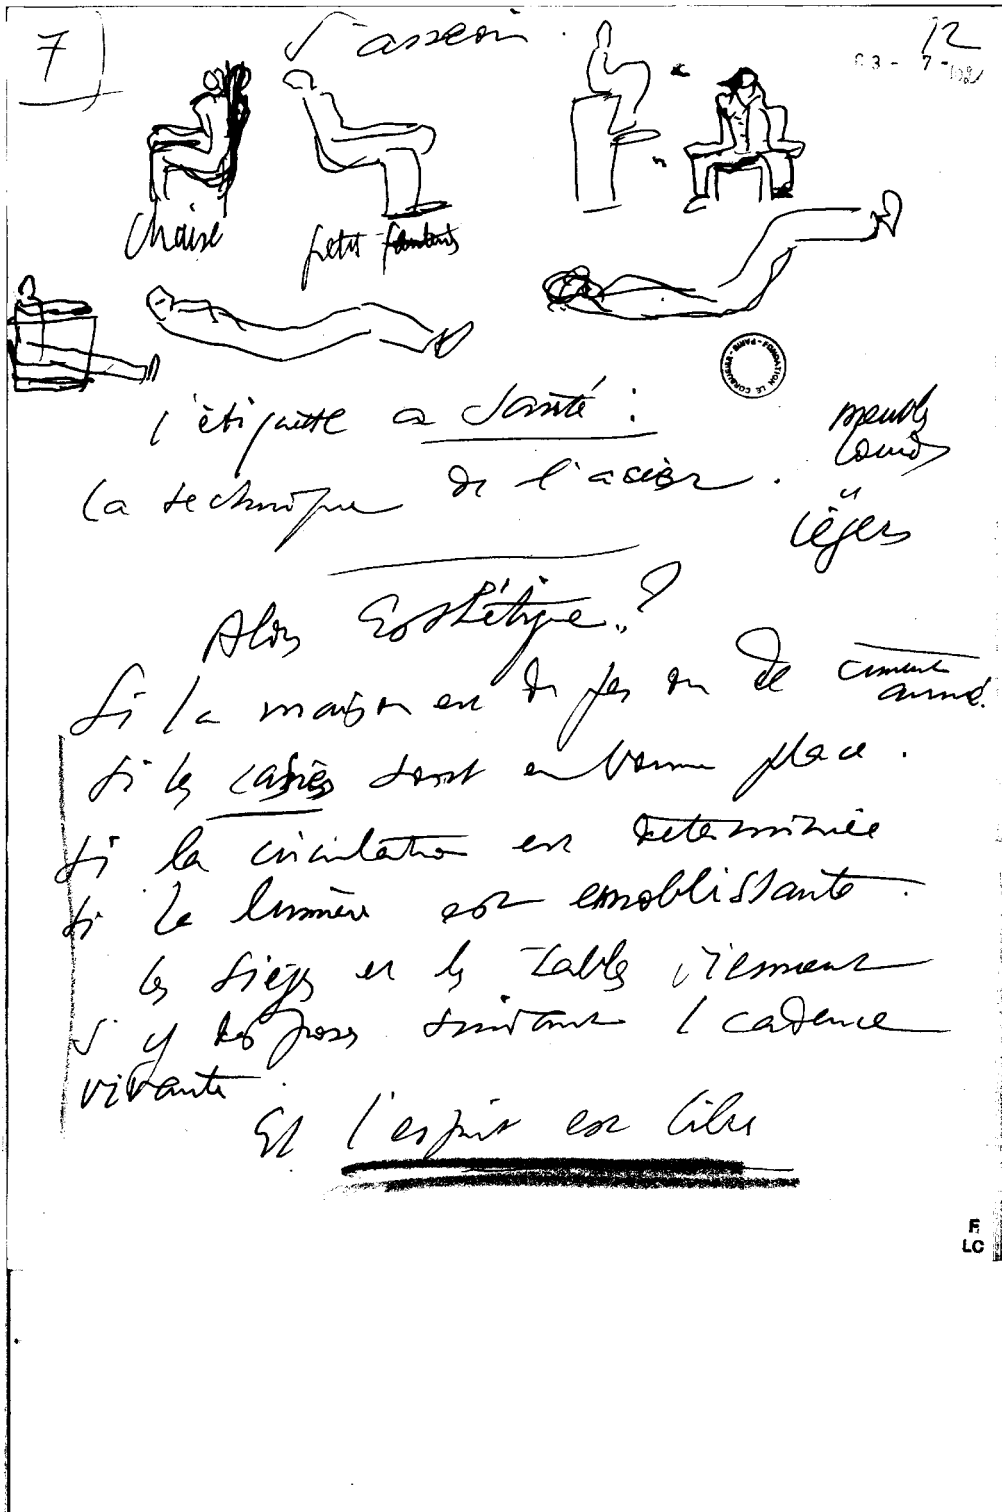 7
S'asseoir
12
C3-7-102
chaise
petit fauteuil
FONDATION LE CORBUSIER - PARIS -
l'étiquette a Santé :
la technique de l'acier.
meubles
lourds
"
légers
Alors Esthétique..?
Si la maison est de fer ou de ciment
armé.
Si les casiers sont en bonne place.
Si la circulation est déterminée
Si la lumière est ennoblissante.
les sièges et les tables viennent
s'y disposer suivant l cadence
vivante.
Et l'esprit est libre
F
LC